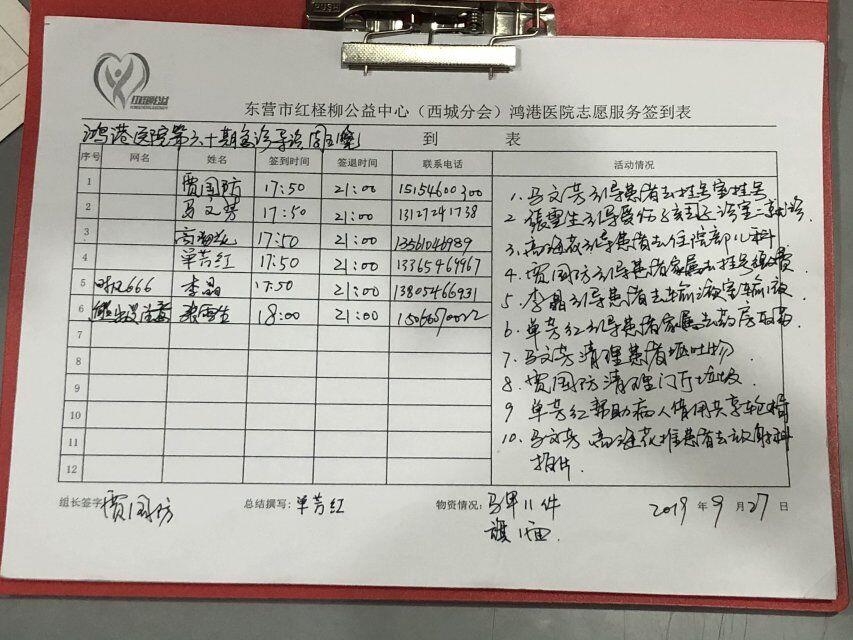 PUSH
红柽柳公益
东营市红柽柳公益中心（西城分会）鸿港医院志愿服务签到表
鸿港医院第六十期急诊导诊周五晚 到 表
序号 网名 姓名 签到时间 签退时间 联系电话 活动情况
1 贾国防 17:50 21:00 15154600300
2 马文芳 17:50 21:00 13127241738
3 高海花 17:50 21:00 13561046989
4 单芳红 17:50 21:00 13365469967
5 666 李晶 17:50 21:00 13805466931
6 张雪生 18:00 21:00
7
8
9
10
11
12
1. 马文芳引导患者去挂号室挂号
2 張雪生引导
3. 高海花引导患者去住院部儿科
4. 贾国防引导患者家属去挂号缴费
5. 李晶引导患者去输液室输液
6. 单芳红引导患者家属去药房取药
7. 马文芳清理患者呕吐物
8. 贾国防清理门厅垃圾
9 单芳红帮助病人借用共享轮椅
10. 马文芳 高海花推患者去放射科
拍片
组长签字 贾国防 总结撰写: 单芳红 物资情况: 马甲11件 2019 年 9 月 27 日
旗1面